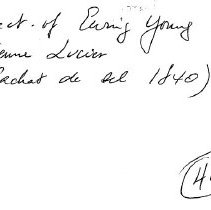 ct. of Ewing Young
ienne Lucier
achat de sel 1840)
4